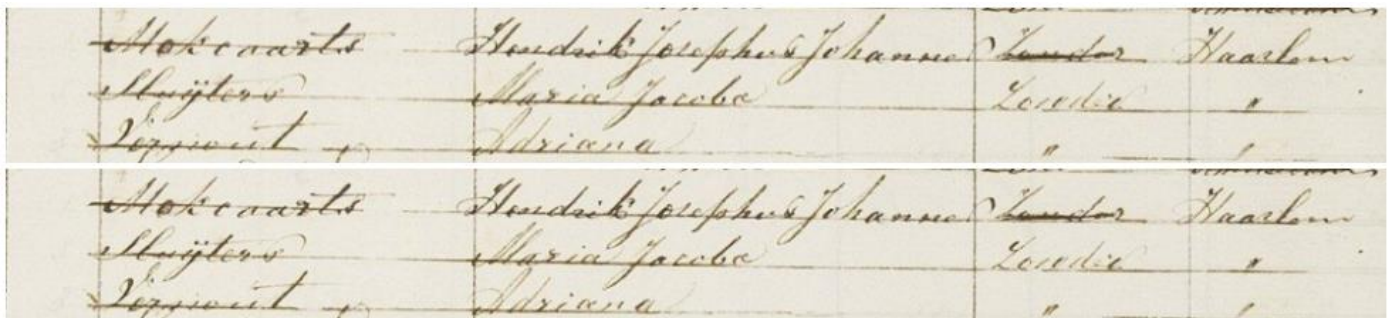 Mokveurts Hendrik Josephus Johannes Zonder Haarlem
Sluijters Maria Jacoba Zonder "
Vermout Adriana " "
Mokveurts Hendrik Josephus Johannes Zonder Haarlem
Sluijters Maria Jacoba Zonder "
Vermout Adriana " "